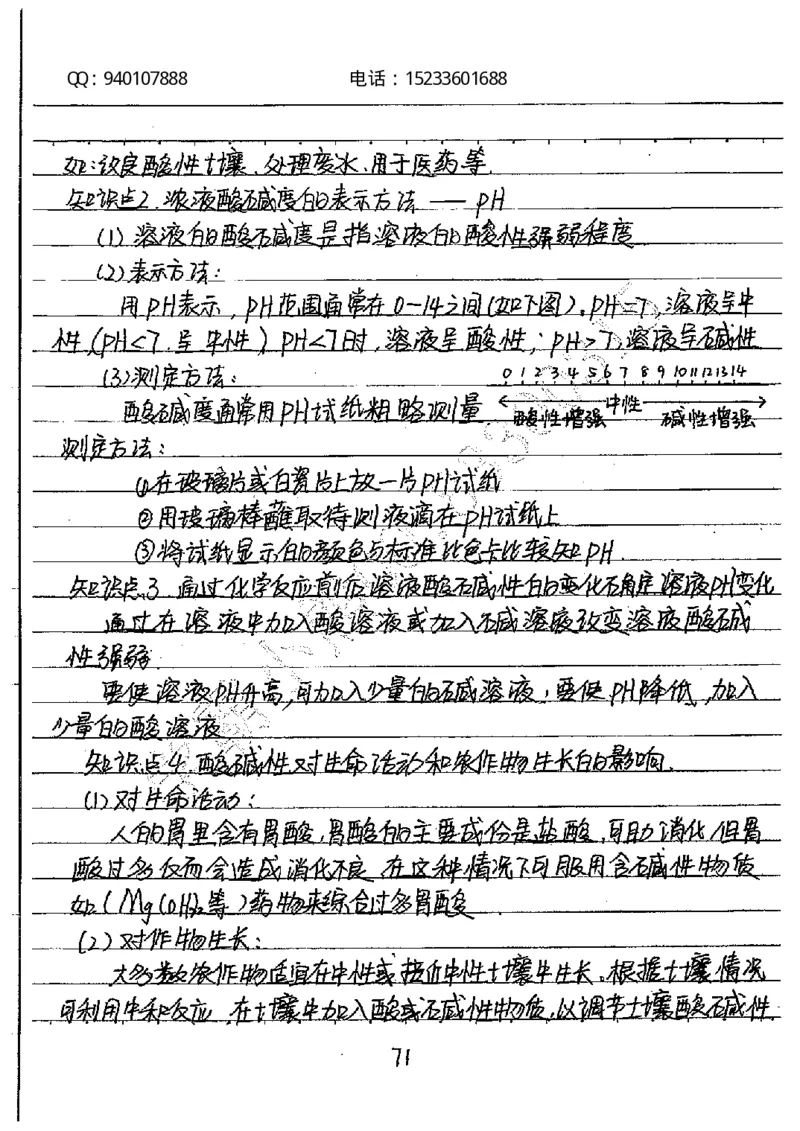 QQ：940107888 电话：15233601688
如：改良酸性土壤、处理废水、用于医药等.
知识点2. 溶液酸碱度的表示方法 —— pH
(1) 溶液的酸碱度是指溶液的酸性强弱程度
(2)表示方法：
用pH表示，pH范围通常在0—14之间(如下图)。pH=7，溶液呈中
性(pH<7.呈中性) pH<7时,溶液呈酸性；pH>7,溶液呈碱性
(3)测定方法：
0 1 2 3 4 5 6 7 8 9 10 11 12 13 14
酸碱度通常用pH试纸粗略测量
酸性增强 中性 碱性增强
测定方法：
①在玻璃片或白瓷片上放一片pH试纸
②用玻璃棒蘸取待测液滴在pH试纸上
③将试纸显示的颜色与标准比色卡比较知pH.
知识点3 通过化学反应前后溶液酸碱性的变化确定溶液pH变化
通过在溶液中加入酸溶液或加入碱溶液改变溶液酸碱
性强弱.
要使溶液pH升高,可加入少量的碱溶液；要使pH降低,加入
少量的酸溶液
知识点4 酸碱性对生命活动和农作物生长的影响.
(1)对生命活动：
人的胃里含有胃酸,胃酸的主要成份是盐酸,可助消化,但胃
酸过多反而会造成消化不良 在这种情况下可服用含碱性物质
如(Mg(OH)₂等)药物来综合过多胃酸
(2)对作物生长：
大多数农作物适宜在中性或接近中性土壤中生长.根据土壤情况
可利用中和反应 在土壤中加入酸或碱性物质,以调节土壤酸碱性.
71